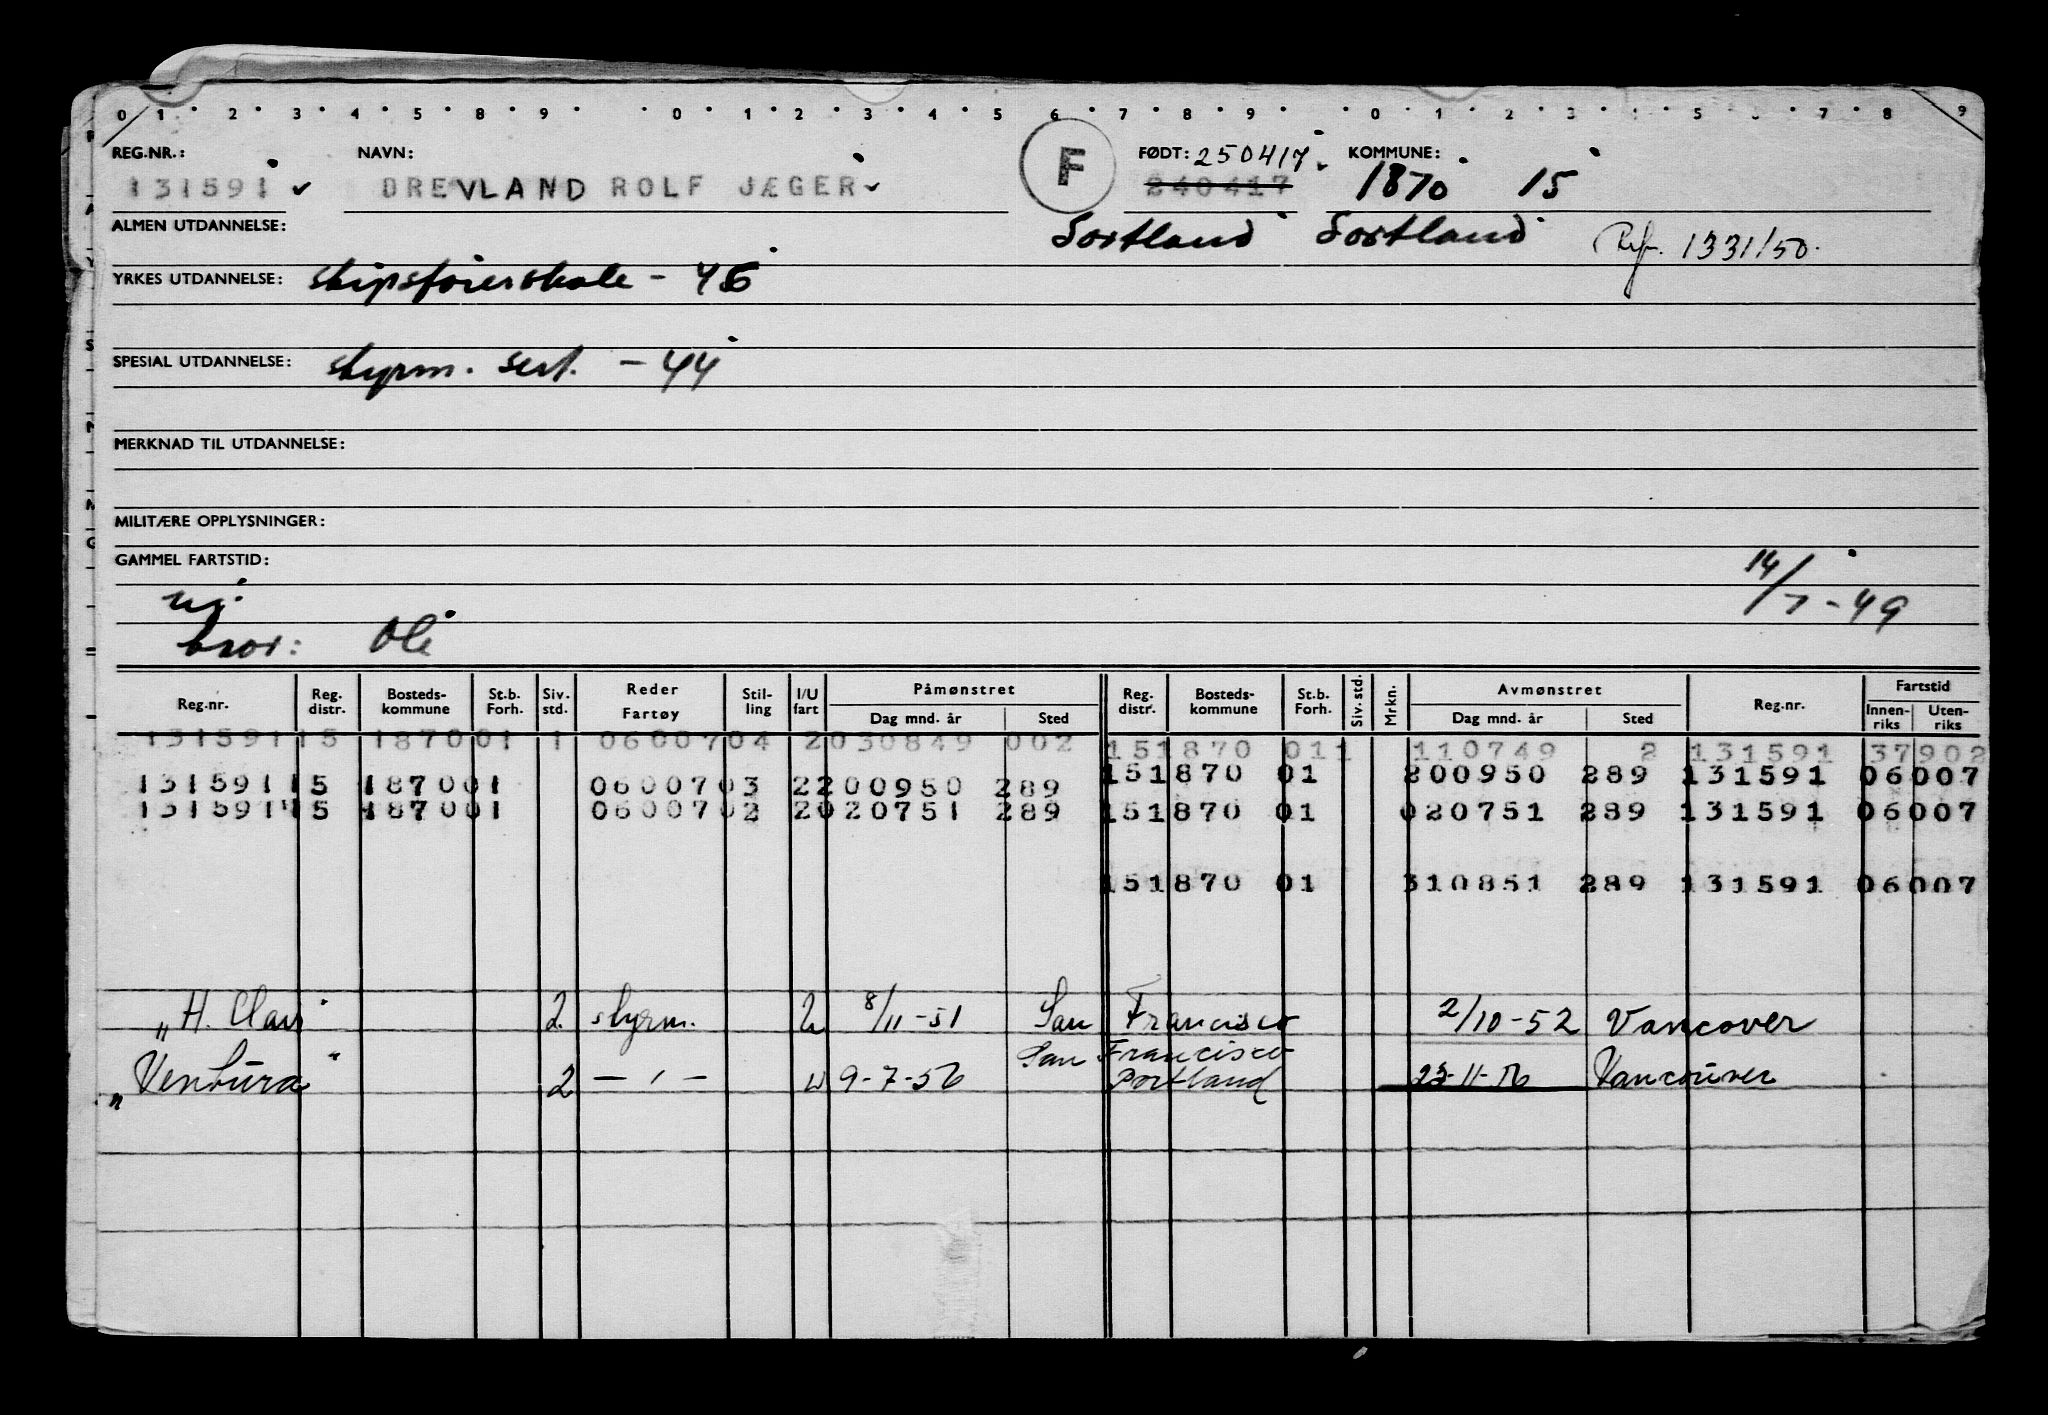 0 1 2 3 4 5 8 9 0 1 2 3 4 5 6 7 8 9 0 1 2 3 4 5 6 7 8 9
REG.NR.: NAVN: F FØDT: 250417 KOMMUNE:
131591 DREVLAND ROLF JÆGER 240417 1870 15
ALMEN UTDANNELSE: Sortland Sortland Ref. 1331/50.
YRKES UTDANNELSE: skipsførerskole - 46
SPESIAL UTDANNELSE: styrm. sert. - 44
MERKNAD TIL UTDANNELSE:
MILITÆRE OPPLYSNINGER:
GAMMEL FARTSTID:
14/7-49
ug.
bror: Ole
Reg.nr. Reg. distr. Bosteds-kommune St.b. Forh. Siv. std. Reder Fartøy Stil-ling I/U fart Påmønstret Dag mnd. år Sted Reg. distr. Bosteds-kommune St.b. Forh. Siv. std. Mrkn. Avmønstret Dag mnd. år Sted Reg.nr. Fartstid Innen-riks Uten-riks
131591 15 1870 01 1 060070 4 2 030849 002 15 1870 01 1 110749 2 131591 37902
131591 15 1870 01 060070 3 2 200950 289 15 1870 01 200950 289 131591 06007
131591 15 1870 01 060070 2 2 020751 289 15 1870 01 020751 289 131591 06007
15 1870 01 310851 289 131591 06007
"H. Clav" 2. styrm. U 8/11-51 San Francisco 2/10-52 Vancover
San Francisco
"Ventura" 2 — ' — U 9-7-56 Portland 23-11-56 Vancouver